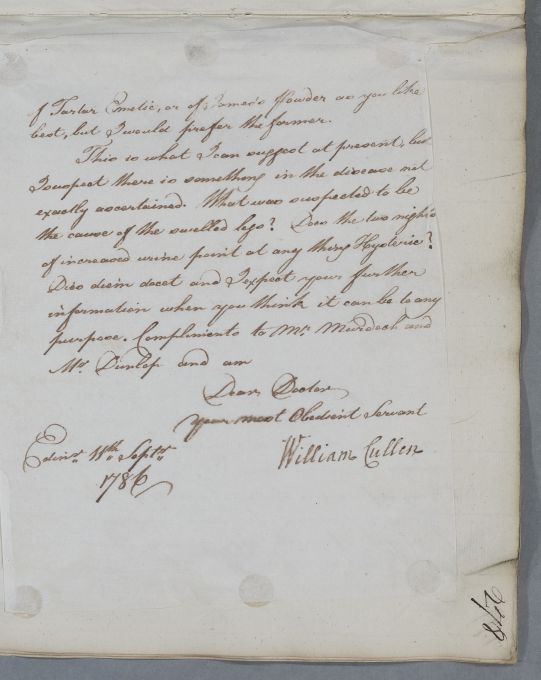 of Tartar Emetic, or of James's Powder as you like
best, but I would prefer the former.
This is what I can suggest at present, but
I suspect there is something in the disease not
exactly ascertained. What was suspected to be
the cause of the swelled legs? Does the two nights
of increased urine point at any thing Hysteric?
Dies diem docet and I expect your further
information when you think it can be to any
purpose. Compliments to Mr. Murdoch and
Mr. Dunlop and am
Dear Doctor
your most Obedient Servant
William Cullen
Edinr. 11th. Septr.
1786
218